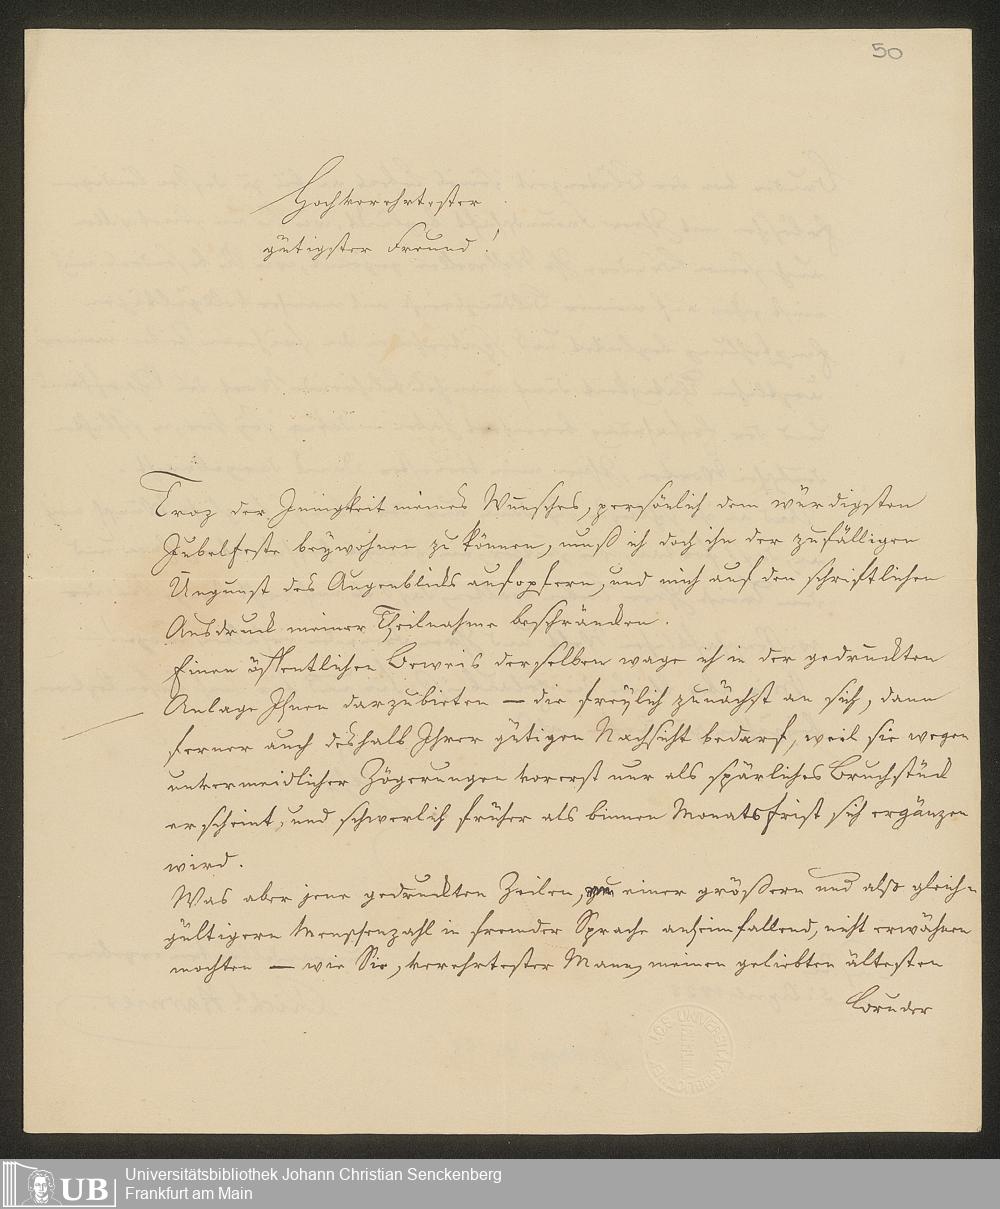 50
Hochverehrtester
gütigster Freund!
Troz der Innigkeit meines Wunsches, persönlich dem würdigsten
Jubelfeste beÿwohnen zu können, muß ich doch ihn der zufälligen
Ungunst des Augenblicks aufopfern, und mich auf den schriftlichen
Ausdruck meiner Theilnahme beschränken.
Einen öffentlichen Beweis derselben wage ich in der gedruckten
Anlage Ihnen darzubieten — die freÿlich zunächst an sich, dann
ferner auch deshalb Ihrer gütigen Nachsicht bedarf, weil sie wegen
unvermeidlicher Zögerungen vorerst nur als spärliches Bruchstück
erscheint, und schwerlich früher als binnen Monatsfrist sich ergänzen
wird.
Was aber jene gedruckten Zeilen, einer größern und also gleich-
gültigern Menschenzahl in fremder Sprache anheimfallend, nicht erwähnen
mochten — wie Sie, verehrtester Mann, meinen geliebten ältesten
Bruder
UNIVERSIT
Universitätsbibliothek Johann Christian Senckenberg
Frankfurt am Main
UB